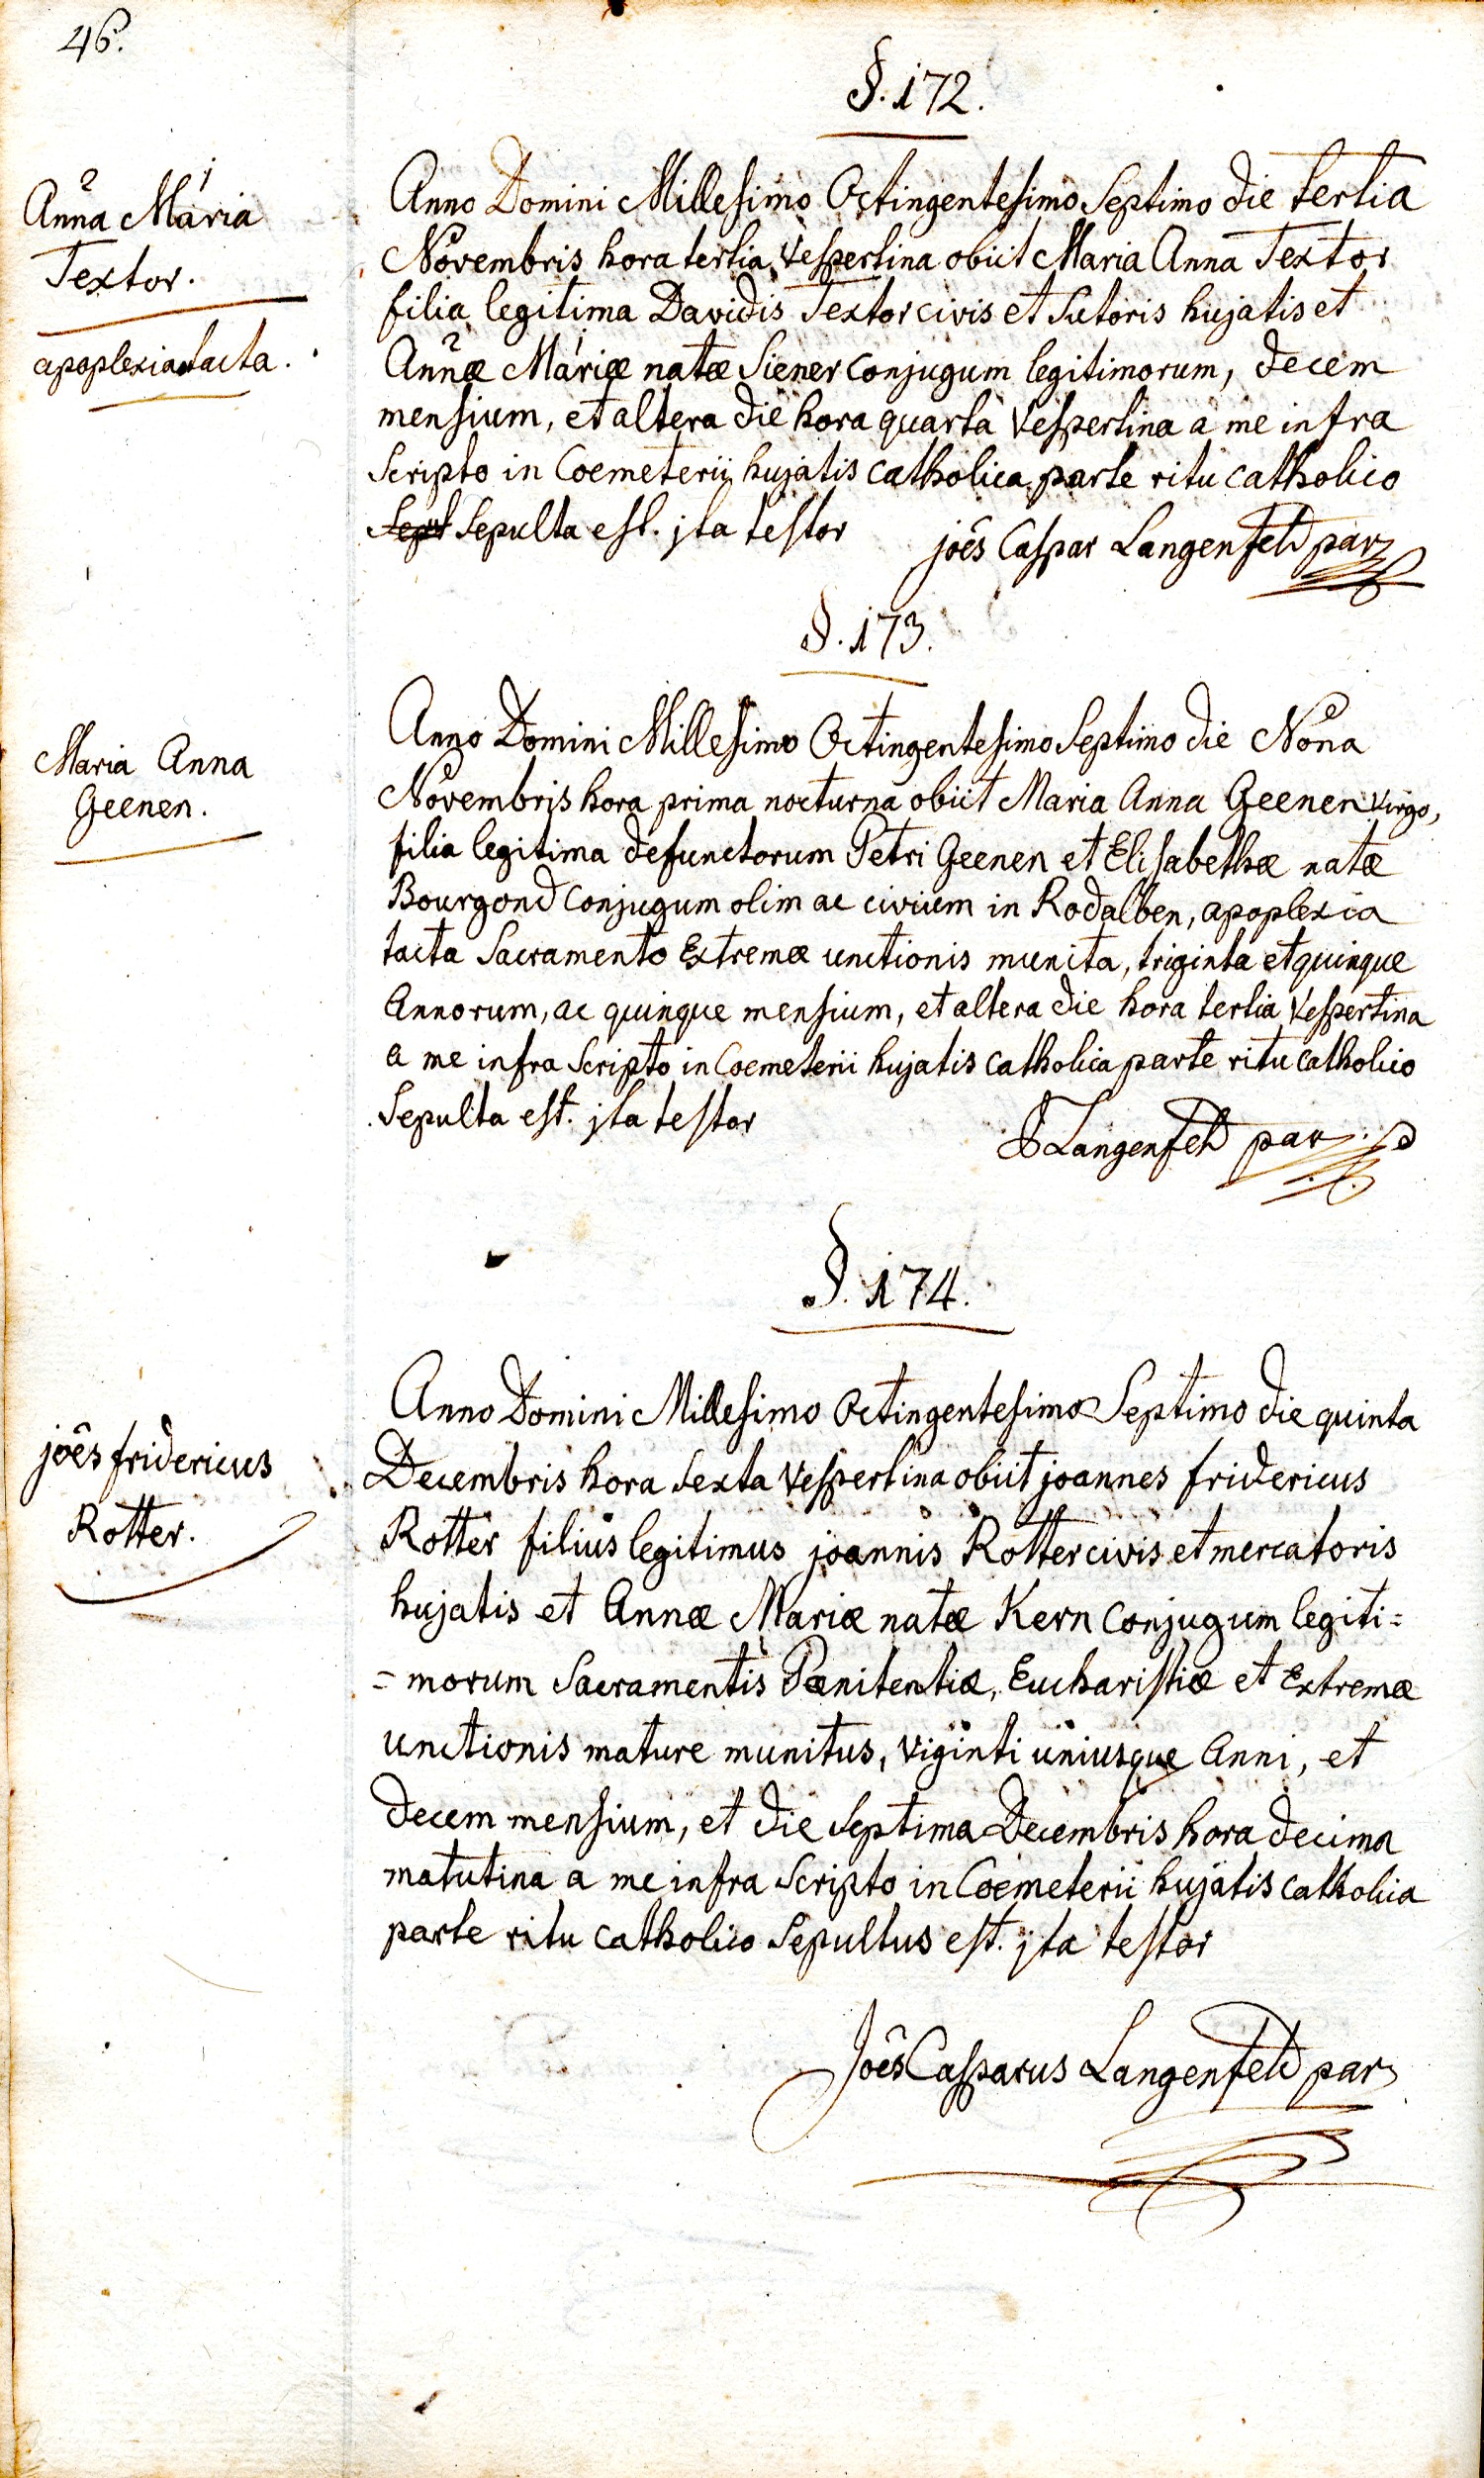 46.
§. 172.
2 1
Anna Maria
Textor.
apoplexia tacta.
Anno Domini Millesimo Octingentesimo Septimo die tertia
Novembris hora tertia Vespertina obiit Maria Anna Textor
filia legitima Davidis Textor civis et Sutoris hujatis et
2 1
Annæ Mariæ natæ Siener conjugum legitimorum, decem
mensium, et altera die hora quarta Vespertina a me infra
Scripto in Coemeterii hujatis catholica parte ritu catholico
Sepul Sepulta est. jta testor joês Caspar Langenfeld par
§. 173.
Maria Anna
Geenen.
Anno Domini Millesimo Octingentesimo Septimo die Nona
Novembris hora prima nocturna obiit Maria Anna Geenen Virgo,
filia legitima defunctorum Petri Geenen et Elisabethæ natæ
Bourgond conjugum olim ac civium in Rodalben, apoplexia
tacta Sacramento Extremæ unctionis munita, triginta et quinque
Annorum, ac quinque mensium, et altera die hora tertia Vespertina
a me infra Scripto in Coemeterii hujatis catholica parte ritu catholico
Sepulta est. jta testor
Langenfeld par
§. 174.
joês fridericus
Rotter.
Anno Domini Millesimo Octingentesimo Septimo die quinta
Decembris hora Sexta Vespertina obiit joannes fridericus
Rotter filius legitimus joannis Rotter civis et mercatoris
hujatis et Annæ Mariæ natæ Kern conjugum legiti=
=morum Sacramentis Pœnitentiæ, Eucharistiæ et Extremæ
unctionis mature munitus, viginti uniusque Anni, et
decem mensium, et die Septima Decembris hora decima
matutina a me infra Scripto in Coemeterii hujatis catholica
parte ritu catholico Sepultus est. jta testor
Joês Casparus Langenfeld par